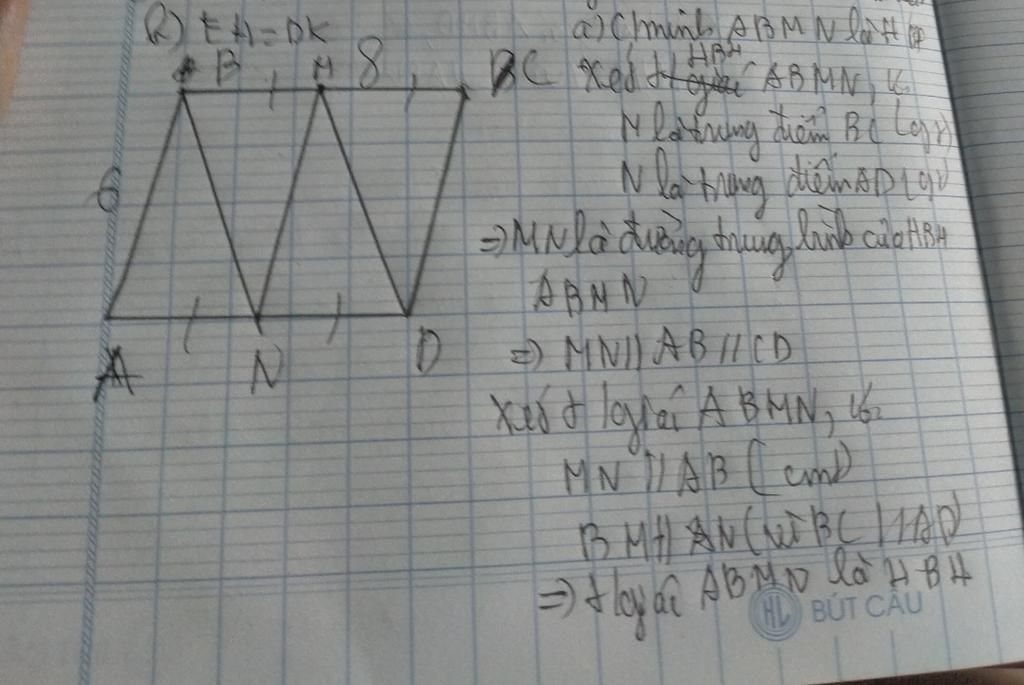 2) EH = DK
B M 8 C
6
A N D
a) C/minh ABMN là H
HBH
Xét tứ giác ABMN, có
N là trung điểm BC (gt)
N là trung điểm AD (gt)
=> MN là đường trung bình của HBH
ABMN
=> MN // AB // CD
Xét tứ giác ABMN, có
MN // AB (cmt)
BM // AN (vì BC // AD)
=> tứ giác ABMN là HBH
HL BÚT CẦU